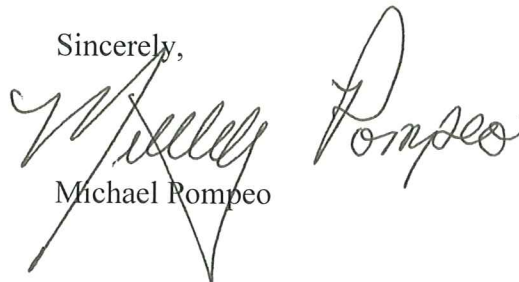 Sincerely,
Pompeo
Michael Pompeo